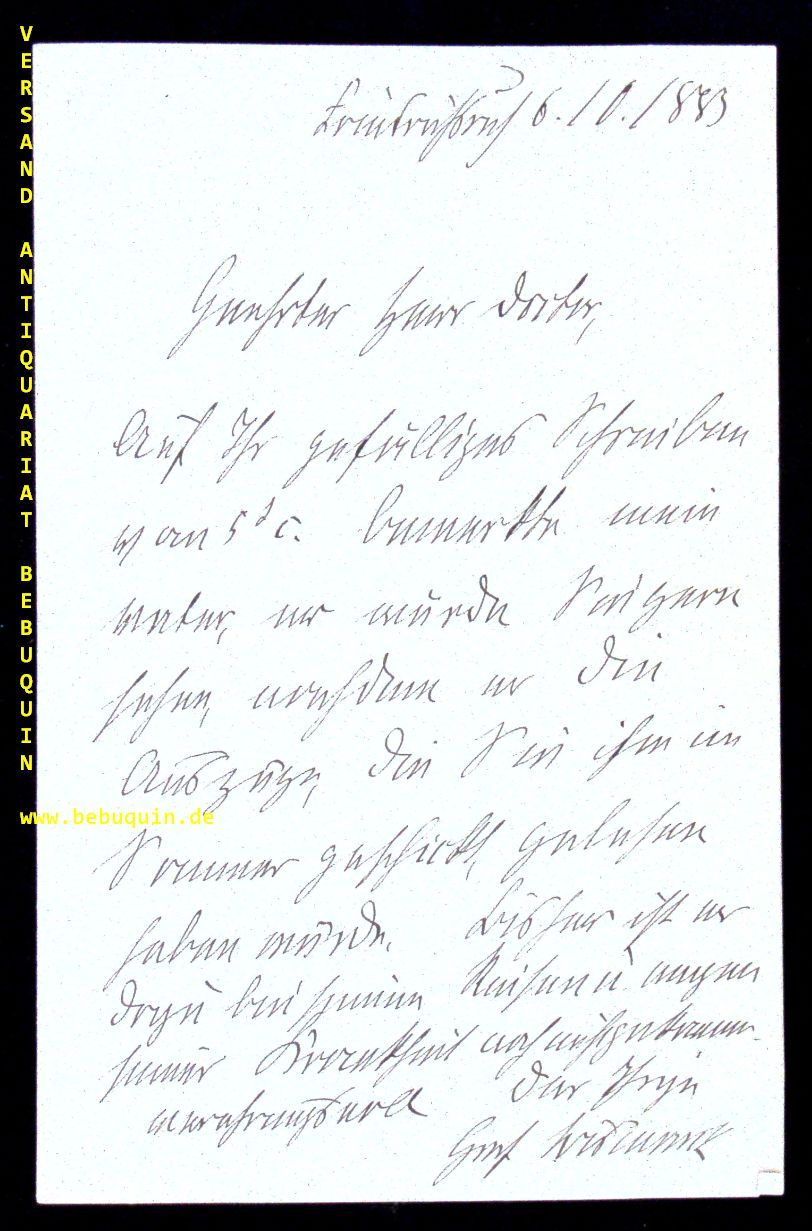 VERSAND ANTIQUARIAT BEBUQUIN
www.bebuquin.de
Friedrichsruh 6./10./1883
Geehrter Herr Doctor,
Auf Ihr gefälliges Schreiben
vom 5 d c. bemerkte mein
Vater, er würde Sie gern
sehen, nachdem er die
Auszüge, die Sie ihm im
Sommer geschickt, gelesen
haben würde. Bisher ist er
dazu bei seinen Reisen u wegen
seiner Krankheit noch nicht gekommen.
Der Ihrige
Graf Bismarck